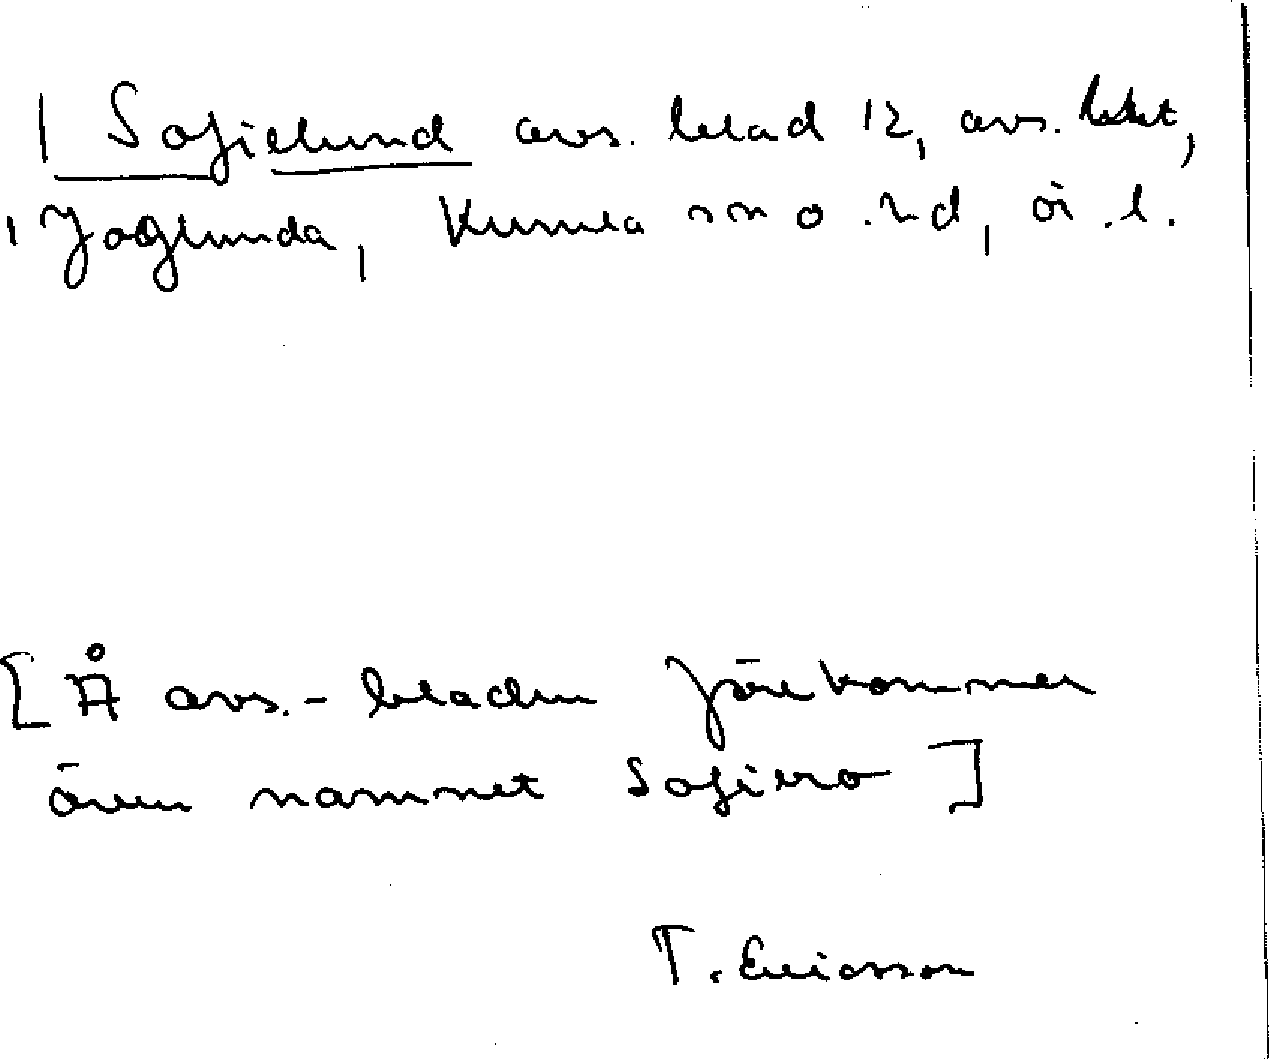 Sofielund avs. blad 12, avs.
Joglunda, Kumla sn o. hd, ör. l.
[Å avs.-bladen förekommer
även namnet Sofiero]
T. Ericsson